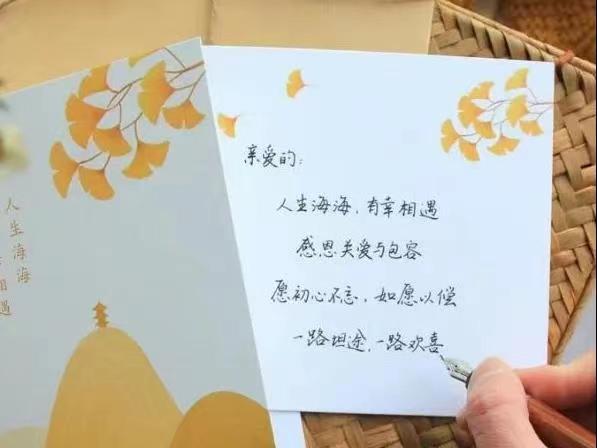 亲爱的：
人生海海，有幸相遇
感恩关爱与包容
愿初心不忘，如愿以偿
一路坦途，一路欢喜
人生海海
相遇